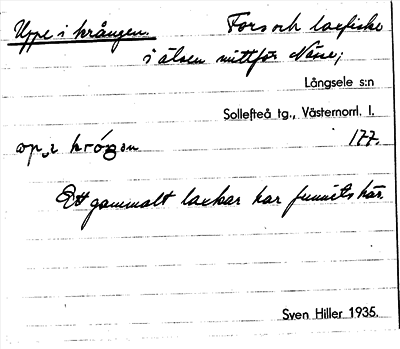 Uppe i krången. Fors och laxfiske
i älven mittför Näse;
Långsele s:n
Sollefteå tg., Västernorrl. l.
177.
Ett gammalt laxkar har funnits här.
Sven Hiller 1935.